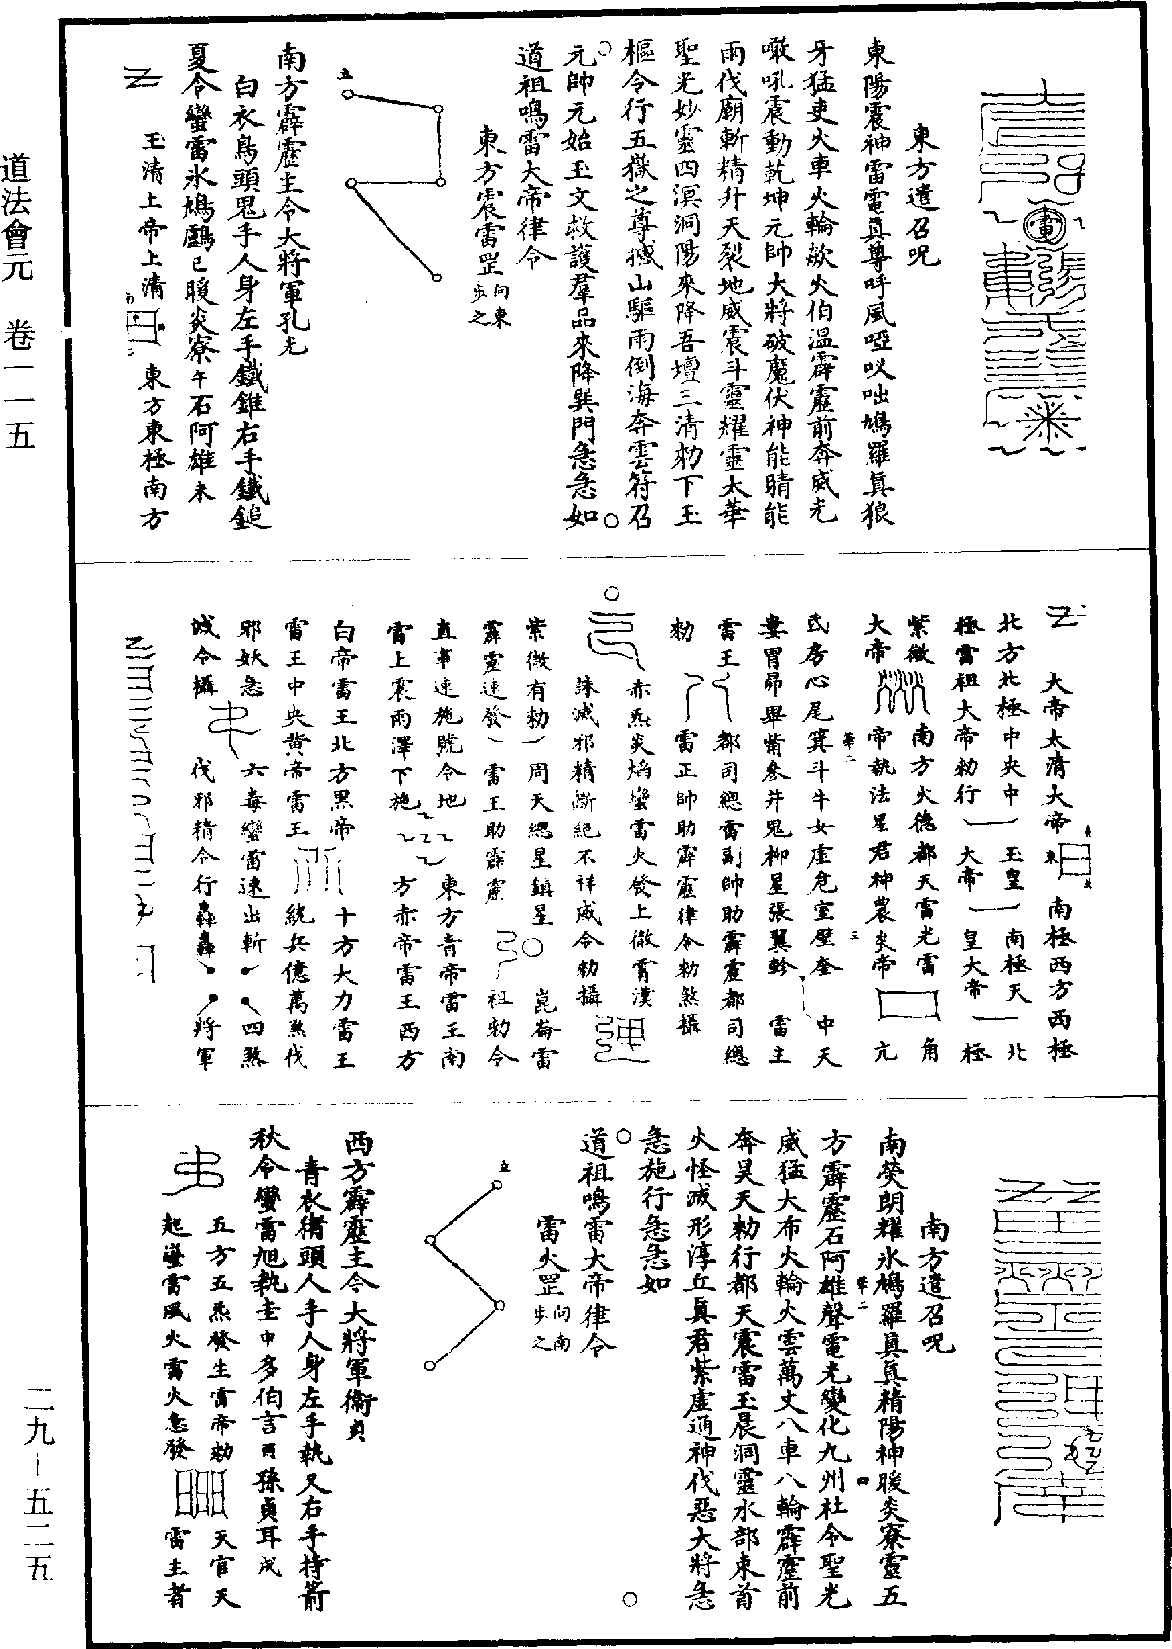 道法會元　卷一一五
東方遣召呪
東陽震神雷電真尊呼風啞㕭咄鳩羅真狼
牙猛吏火車火輪歘火伯溫霹靂前奔威光
噉吼震動乾坤元帥大將破魔伏神能晴能
雨伐廟斬精升天裂地威震斗靈耀靈太華
聖光妙靈四溟洞陽來降吾壇三清勑下玉
樞令行五嶽之尊撼山驅雨倒海奔雲符召
元帥元始玉文救護羣品來降巽門急急如
道祖鳴雷大帝律令
東方震雷罡向東步之
五
南方霹靂主令大將軍孔尤
白衣鳥頭鬼手人身左手鐵錐右手鐵鎚
夏令蠻雷氷鳩鸓巳暖炎寮午石阿雄未
玉清上帝上清　東方東極南方
大帝太清大帝　南極西方西極
北方北極中央中　玉皇　南極天　北
極雷祖大帝勑行　大帝　皇大帝　極
紫微　南方火德都天雷光雷　角
大帝　帝執法星君神農炎帝　亢
氐房心尾箕斗牛女虛危室壁奎　中天
婁胃昴畢觜參井鬼柳星張翼軫　雷主
雷王　都司總雷副帥助霹靂都司總
勑　雷正帥助霹靂律令勑煞攝
赤炁炎焰蠻雷火發上徹霄漢
誅滅邪精斷絕不祥威令勑攝
紫微有勑　周天總星鎮星　崑崙雷
霹靂速發　雷王助霹靂　祖勑令
直事速施號令地　東方青帝雷王南
雷上衮雨澤下施　方赤帝雷王西方
白帝雷王北方黑帝　十方大力雷王
雷王中央黃帝雷王　統兵億萬煞伐
邪妖急　六毒蠻雷速出斬　四煞
城令攝　伐邪精令行轟轟　將軍
南方遣召呪
南熒朗耀氷鳩羅真真精陽神暖炎寮靈五
方霹靂石阿雄聲電光變化九州社令聖光
威猛大布火輪火雲萬丈八車八輪霹靂前
奔昊天勑行都天震雷玉晨洞靈水部東首
火怪滅形淳丘真君紫虛通神伐惡大將急
急施行急急如
道祖鳴雷大帝律令
雷火罡向南步之
五
西方霹靂主令大將軍衞貞
青衣猪頭人手人身左手執叉右手持箭
秋令蠻雷旭執圭申多伯言酉孫貞耳戌
五方五炁發生雷帝勑　天官天
起蠻雷風火雷火急發　雷主者
二九－五二五